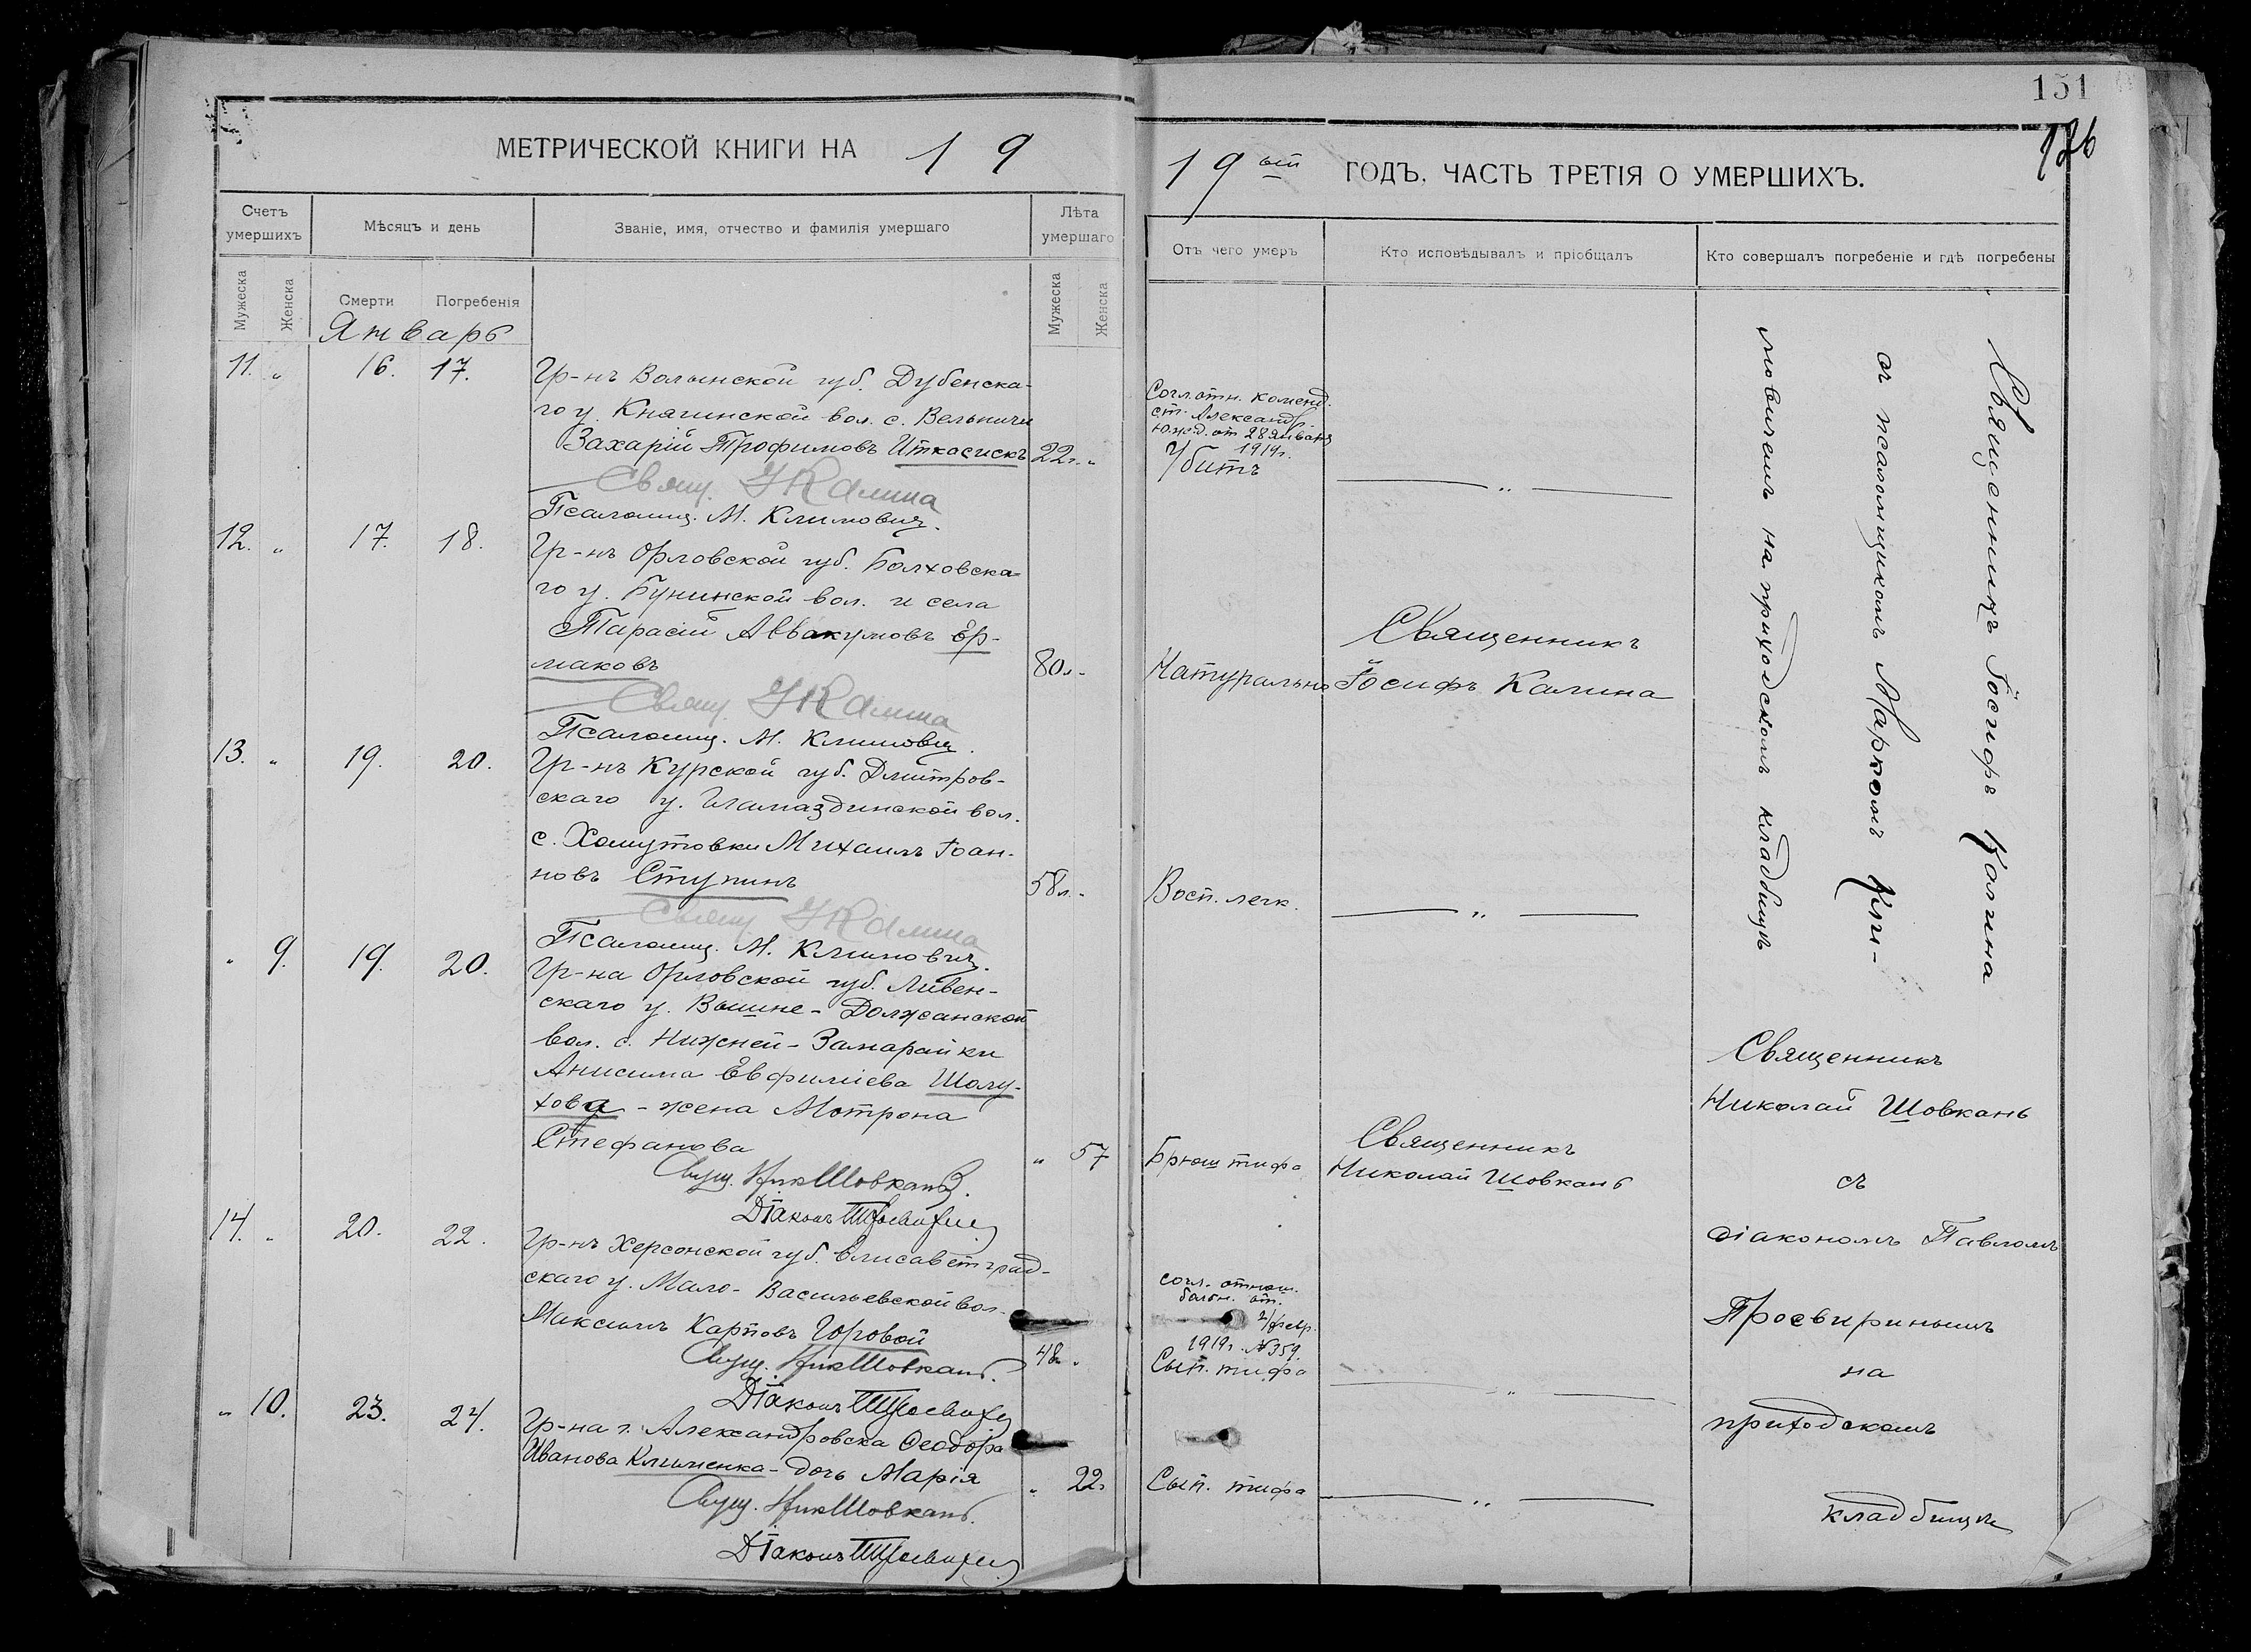 151
126
МЕТРИЧЕСКОЙ КНИГИ НА 19
19ый ГОДЪ, ЧАСТЬ ТРЕТІЯ О УМЕРШИХЪ.
Счетъ умершихъ
Мѣсяцъ и день
Званіе, имя, отчество и фамилія умершаго
Лѣта умершаго
Отъ чего умеръ
Кто исповѣдывалъ и пріобщалъ
Кто совершалъ погребеніе и гдѣ погребены
Мужеска
Женска
Смерти
Погребенія
Мужеска
Женска
Январь
11. " 16. 17.
Гр-нъ Волынской губ. Дубенска-
го у. Княгинской вол. с. Вельничи
Захарій Трофимовъ Иткасискъ 22г. "
Согл. отн. коменд.
ст. Александр.
Юж. д. от 28 января
1919г.
Убитъ
— " —
Свящ. І Калина
Псаломщ. М. Климович.
12. " 17. 18.
Гр-нъ Орловской губ. Болховска-
го у. Бунинской вол. и села
Тарасій Аввакумовъ Ер-
маковъ 80л.
Натурально
Священникъ
Іосифъ Калина
Свящ. І Калина
Псаломщ. М. Климович.
13. " 19. 20.
Гр-нъ Курской губ. Дмитров-
скаго у. Гламаздинской вол.
с. Хомутовки Михаилъ Іоан-
новъ Ступинъ 58л.
Восп. легк.
— " —
Свящ. І Калина
Псаломщ. М. Климович.
Священникъ Іосифъ Калина
съ псаломщикомъ Маркомъ Кли-
мовичемъ на приходскомъ кладбищѣ
" 9. 19. 20.
Гр-на Орловской губ. Ливен-
скаго у. Вышне-Должанской
вол. с. Нижней-Замарайки
Анисима Евфиміева Шолу-
хова - жена Мотрона
Стефанова " 57
Брюш тифа
Священникъ
Николай Шовкань
Свящ. Ник Шовкань.
Діаконъ П Просвирин
14. " 20. 22.
Гр-нъ Херсонской губ. Елисаветград-
скаго у. Мало-Васильевской вол.
Максимъ Карповъ Горовой 48л. "
согл. отнош.
больн. от.
2/февр.
1919г. № 359.
Сып. тифа
— " —
Свящ. Ник Шовкань.
Діаконъ П Просвирин
" 10. 23. 24.
Гр-на г. Александровска Ѳеодора
Иванова Клименка - дочь Марія " 22г.
Сып. тифа
— " —
Свящ. Ник Шовкань.
Діаконъ П Просвирин
Священникъ
Николай Шовкань
съ
діакономъ Павломъ
Просвиринымъ
на
приходскомъ
кладбищѣ